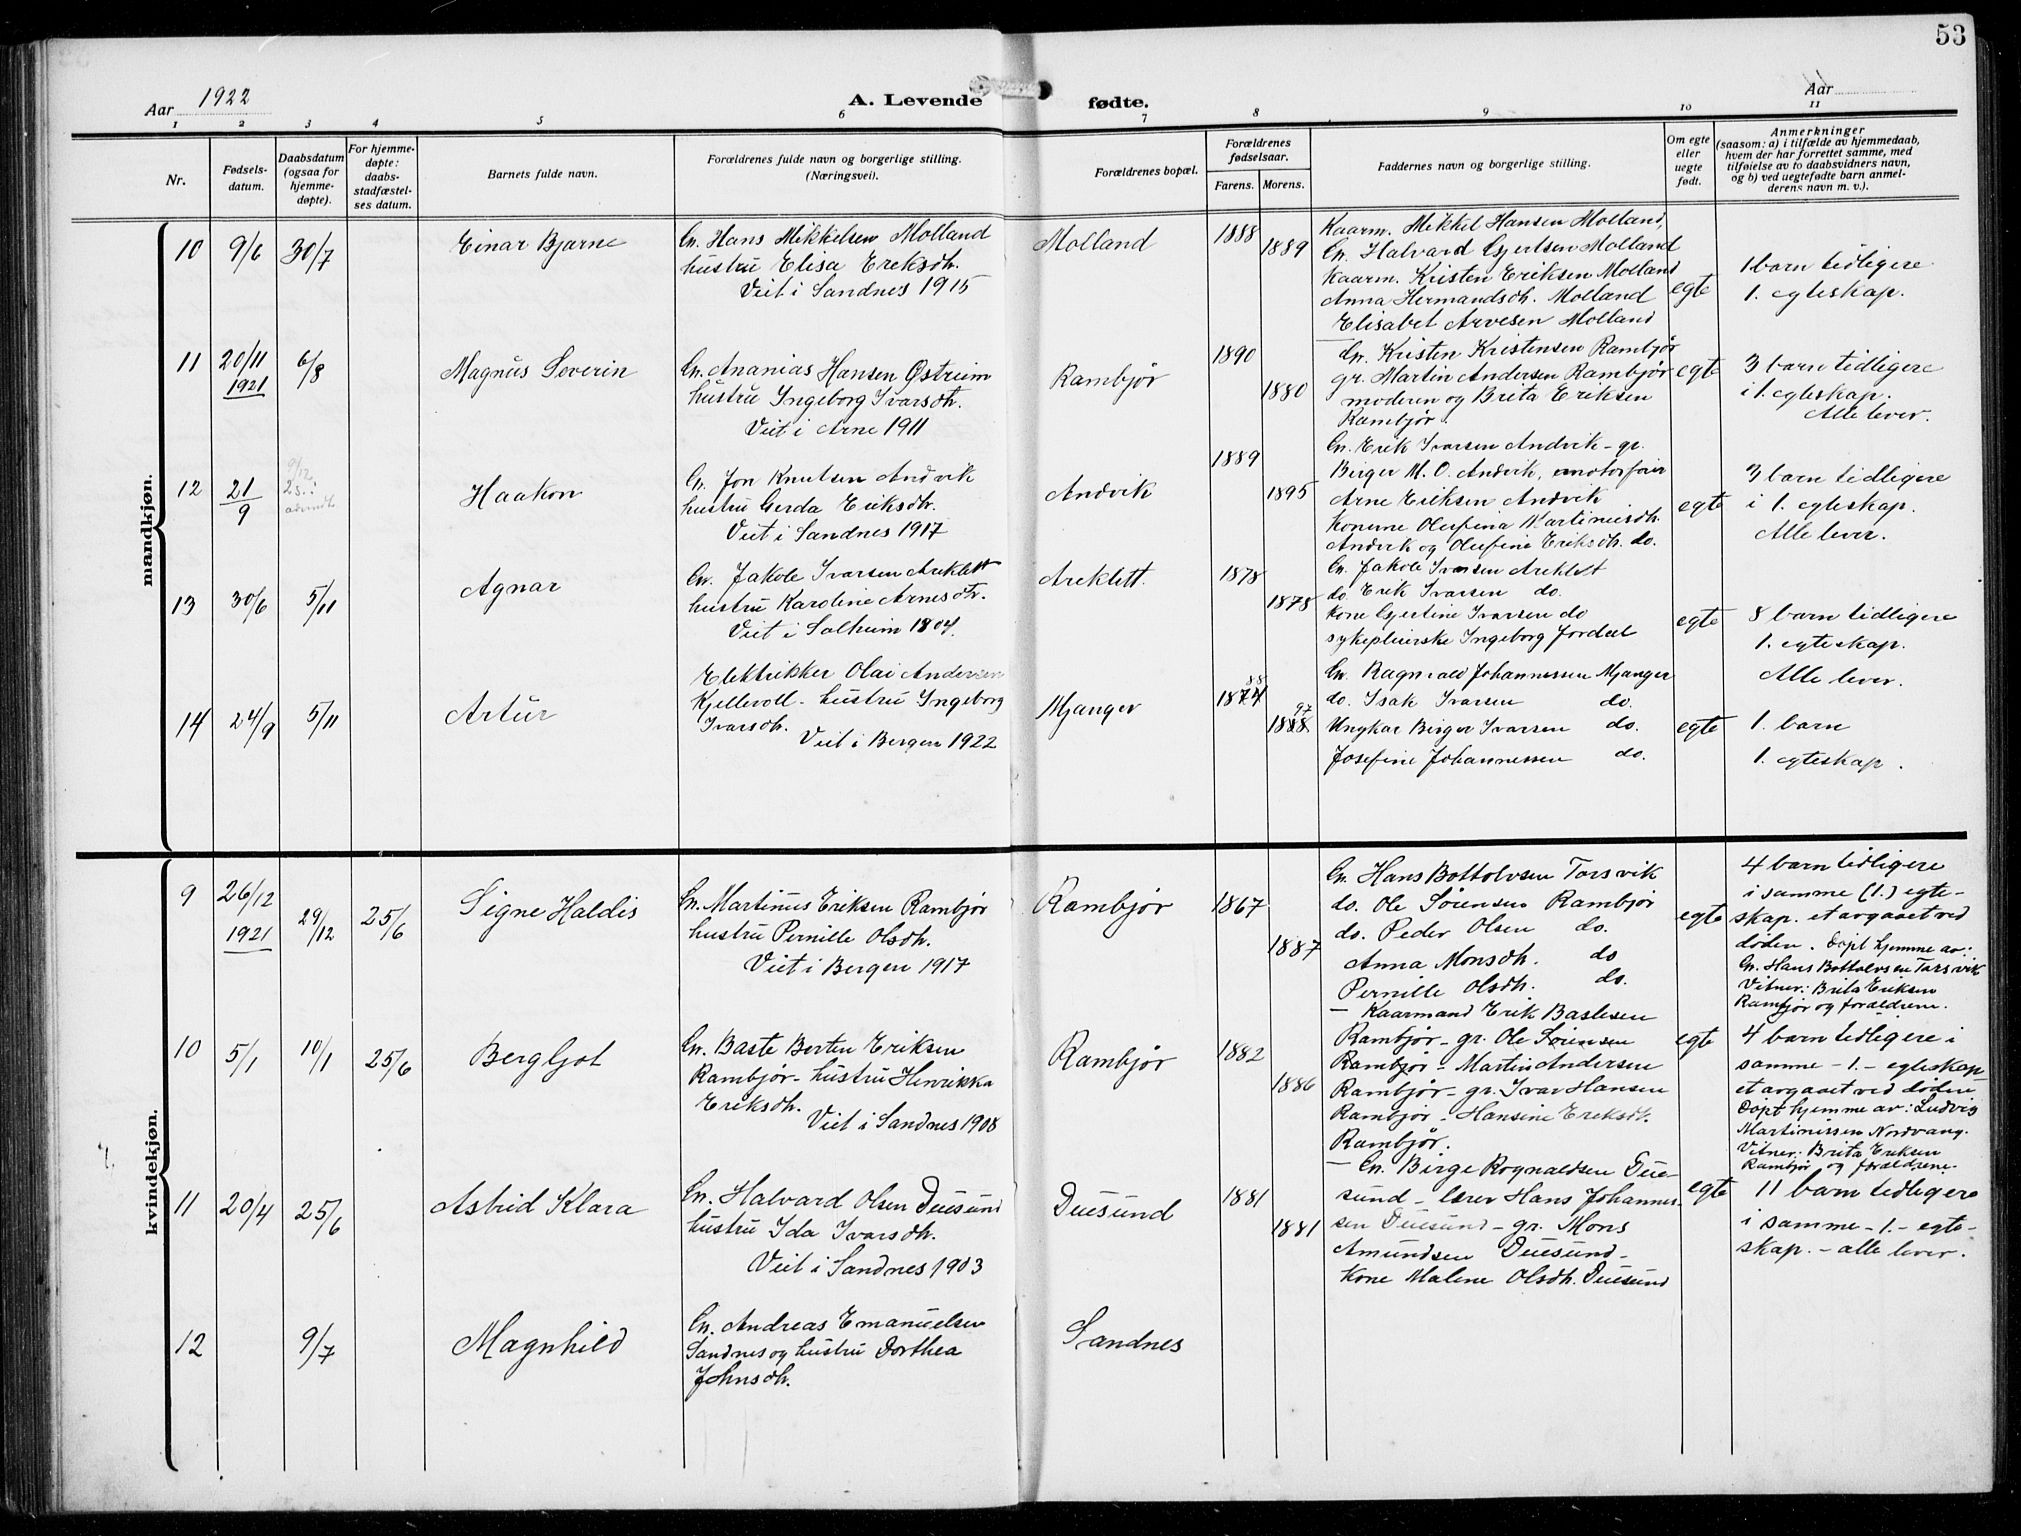 53
Aar 1922
A. Levende fødte.
Aar
1 2 3 4 5 6 7 8 9 10 11
Nr.
Fødsels-
datum.
Daabsdatum
(ogsaa for
hjemme-
døpte).
For hjemme-
døpte:
daabs-
stadfæstel-
ses datum.
Barnets fulde navn.
Forældrenes fulde navn og borgerlige stilling.
(Næringsvei).
Forældrenes bopæl.
Forældrenes
fødselsaar.
Farens. Morens.
Faddernes navn og borgerlige stilling.
Om egte
eller
uegte
født.
Anmerkninger
(saasom: a) i tilfælde av hjemmedaab,
hvem der har forrettet samme, med
tilføielse av to daabsvidners navn,
og b) ved uegtefødte barn anmel-
derens navn m. v.).
mandkjøn.
10 9/6 30/7 Einar Bjarne
Gn. Hans Mikkelsen Molland
hustru Elisa Ereksdtr.
Viet i Sandnes 1915
Molland 1888 1889
Kaarm. Mikkel Hansen Molland,
Gn. Halvard Gjertsen Molland
Kaarm. Kristen Eriksen Molland
Anna Hermandsdtr. Molland
Elisabet Arvesen Molland
egte
1 barn tidligere
1. egteskap.
11 20/11 1921 6/8 Magnus Severin
Gn. Ananias Hansen Østrum
hustru Ingeborg Ivarsdtr.
Viet i Arne 1911
Rambjør 1890 1880
Gn. Kristen Kristensen Rambjør
gr. Martin Andersen Rambjør
moderen og Brita Eriksen
Rambjør.
egte
3 barn tidligere
i 1. egteskap.
Alle lever.
12 21/9 9/12 Haakon
Gn. Jon Knutsen Andvik
hustru Gerda Eriksdtr.
Viet i Sandnes 1917
Andvik 1889 1895
Gn. Erik Ivarsen Andvik - gr.
Birger M. O. Andvik, motorfører
Arne Eriksen Andvik
Konerne Olufina Martinusdtr.
Andvik og Olufine Eriksdtr. do.
egte
3 barn tidligere
i 1. egteskap.
Alle lever.
13 30/6 5/11 Agnar
Gn. Jakob Ivarsen Areklett
hustru Karoline Arnesdtr.
Viet i Solheim 1904.
Areklett. 1878 1878
Gn. Jakob Ivarsen Areklett
do. Erik Ivarsen do.
Kone Gjertine Ivarsen do
sykepleierske Ingeborg Jordal
egte
8 barn tidligere
1. egteskap.
Alle lever.
14 24/9 5/11 Artur
Elektrikker Olai Andersen
Kjellevoll - hustru Ingeborg
Ivarsdtr.
Viet i Bergen 1922
Mjanger 1874 88 1888 97
Gn. Ragnvald Johannessen Mjanger
do. Isak Ivarsen do.
Ungkar Birger Ivarsen do.
Josefine Johannessen do.
egte
1. barn
1. egteskap.
kvindekjøn.
9 26/12 1921 29/12 25/6 Signe Haldis
Gn. Martinus Eriksen Rambjør
hustru Pernille Olsdtr.
Viet i Bergen 1917
Rambjør 1867 1887
Gn. Hans Bottolvsen Torsvik
do. Ole Sørensen Rambjør
do. Peder Olsen do.
Anna Monsdtr. do
Pernille Olsdtr. do.
egte
4 barn tidligere
i samme (1.) egte-
skap. et avgaaet ved
døden. Døpt hjemme av:
Gn. Hans Bottolvsen Torsvik
Vitner: Brita Eriksen
Rambjør og forældrene.
10 5/1 10/1 25/6 Bergljot
Gn. Baste Berten Eriksen
Rambjør - hustru Henrikka
Eriksdtr.
Viet i Sandnes 1908
Rambjør 1882 1886
- Kaarmand Erik Bastesen
Rambjør - gr. Ole Sørensen
Rambjør - Martin Andersen
Rambjør - gr. Ivar Hansen
Rambjør - Hansine Eriksdtr.
Rambjør.
egte
4 barn tidligere i
samme - 1. - egteskap
et avgaaet ved døden
Døpt hjemme av: Ludvig
Martinissen Nordvang.
Vitner: Brita Eriksen
Rambjør og forældrene.
11 20/4 25/6 Astrid Klara
Gn. Halvard Olsen Duesund
hustru Ida Ivarsdtr.
Viet i Sandnes 1903
Duesund 1881 1881
- Gn. Birge Rognaldsen Due-
sund - lærer Hans Johannes-
sen Duesund - gr. Mons
Amundsen Duesund -
Kone Malene Olsdtr. Duesund
egte
11 barn tidligere
i samme - 1. - egte-
skap. - alle lever.
12 9/7 Magnhild
Gn. Andreas Emanuelsen
Sandnes og hustru Dorthea
Johnsdtr.
Sandnes